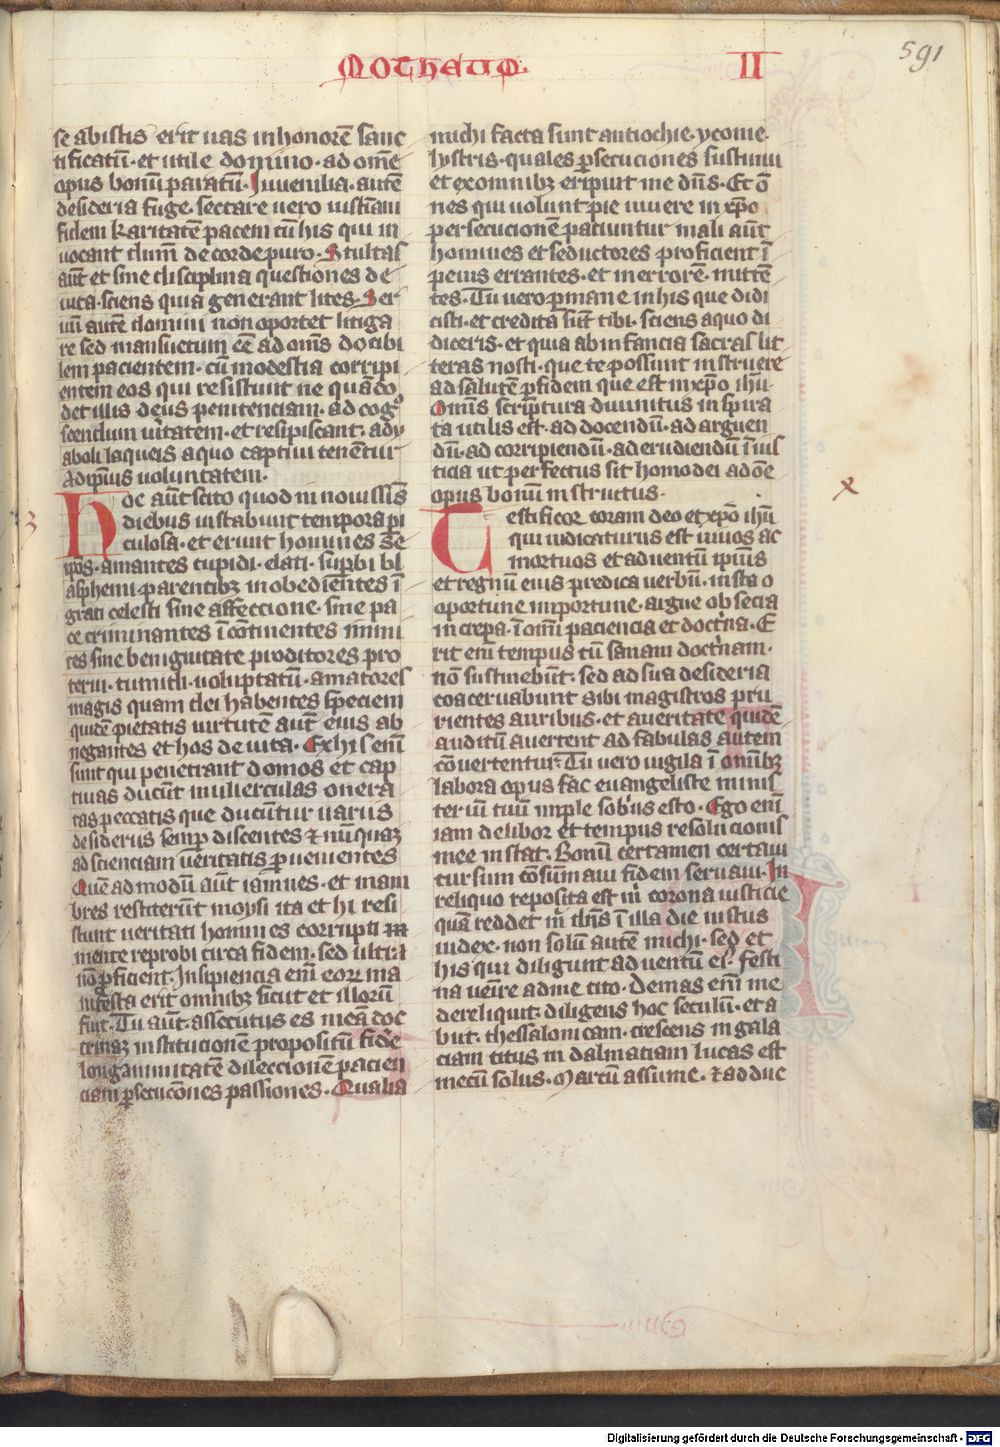 MOTHEUO II 591
se ab istis erit uas in honorē sanc
tificatū· et utile domino· ad omē
opus bonū paratū· Iuuenilia· autē
desideria fuge· sectare uero iusticiā
fidem karitatē pacem cū his qui in
uocant dnm̄ de corde puro· Stultas
aūt et sine disciplina questiones de
uita· sciens quia generant lites· Ser
uū autē domini non oportet litiga
re sed mansuetum eē ad om̄s docibi
lem pacientem· cū modestia corripi
entem eos qui resistunt ne quādo
det illis deus penitenciam· ad cog
scendum ūitatem· et resipiscant· a dy
aboli laqueis a quo captiui tenētur
ad ip̄ius uoluntatem·
Hoc aūt scito quod in nouissīs
diebus instabunt tempora pi
culosa· et erunt homines se
ip̄os· amantes cupidi· elati· supbi bl
asphemi parentibꝫ inobedientes ī
grati celesti sine affeccione· sine pa
ce criminantes īcōtinentes inmi
tes sine benignitate proditores pro
terui· tumidi· uoluptatū· amatores
magis quam dei habentes speciem
quidē pietatis uirtutē aūt eius ab
negantes et hos deuita· Ex his enī
sunt qui penetrant domos et cap
tiuas ducūt mulierculas onera
tas peccatis que ducūtur uariis
desideriis semp discentes ⁊ nūquaꝫ
ad scienciam ueritatis puenientes
Quē ad modū aūt iamnes· et mam
bres restiterūt moysi ita et hi resi
stunt ueritati homines corrupti
mente reprobi circa fidem· sed ultra
nō pficient· Insipiencia enī eorꝝ ma
nifesta erit omnibꝫ sicut et illorū
fuit· Tu aūt· assecutus es meā doc
trinaꝫ institucionē propositū fidē
longanimitatē dileccionē pacien
ciam psecucōnes passiones· Qualia
michi facta sunt antiochie· yconie·
lystris· quales psecuciones sustinui
et ex omnibꝫ eripuit me dn̄s· Et ō
nes qui uolunt pie uiuere in xp̄o
persecucionē paciuntur mali aūt
homines et seductores proficient ī
peius errantes· et in errorē· mittē
tes· Tu uero pmane in his que didi
cisti· et credita sūt tibi· sciens a quo di
diceris· et quia ab infancia sacras lit
teras nosti· que te possunt instruere
ad salutē p fidem que est in xp̄o ihu·
Omīs scriptura diuinitus inspira
ta utilis est· ad docendū· ad arguen
dū· ad corripiendū· ad erudiendū ī ius
ticia ut perfectus sit homo dei ad oē
opus bonū instructus·
Testificor coram deo et xp̄o ihū
qui iudicaturus est uiuos ac
mortuos et aduentū ipīus
et regnū eius predica uerbū· insta o
oportune inportune· argue obsecra
increpa· ī omī paciencia et doctna· E
rit enī tempus cū sanam doctnam·
nō sustinebūt· sed ad sua desideria
coaceruabunt sibi magistros pru
rientes auribus· et a ueritate quidē
auditū auertent ad fabulas autem
cōuertentur· Tu uero uigila ī omībꝫ
labora opus fac euangeliste minis
teriū tuū imple sobrius esto· Ego enī
iam delibor et tempus resolucionis
mee instat· Bonū certamen certaui
cursum cōsūmaui fidem seruaui· In
reliquo reposita est m̄ corona iusticie
quā reddet m̄ dn̄s ī illa die iustus
iudex· non solū autē michi· sed et
his qui diligunt aduentū eī· festi
na ueīre ad me cito· Demas enī me
dereliquit· diligens hoc seculū· et a
biit· thessalonicam· crescens in gala
ciam titus in dalmatiam lucas est
mecū solus· Marcū assume· ⁊ adduc
3
x
Digitalisierung gefördert durch die Deutsche Forschungsgemeinschaft - DFG